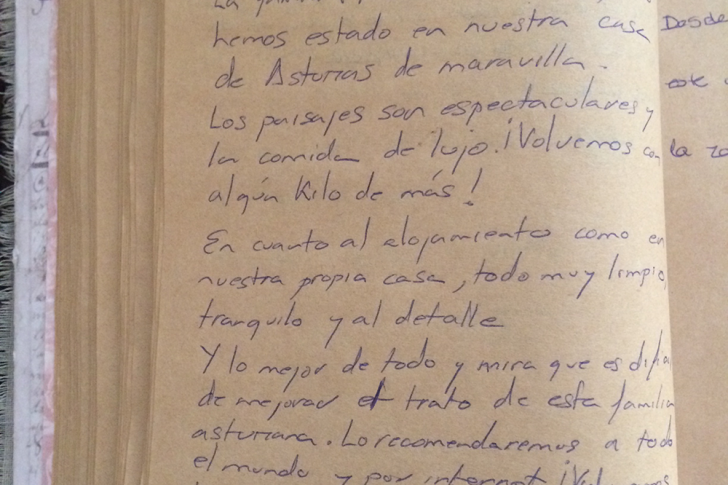 La
hemos estado en nuestra casa
de Asturias de maravilla.
Los paisajes son espectaculares y
la comida de lujo. ¡Volvemos con
algún kilo de más!
En cuanto al alojamiento como en
nuestra propia casa, todo muy limpio,
tranquilo y al detalle
Y lo mejor de todo y mira que es difícil
de mejorar el trato de esta familia
asturiana. Lo recomendaremos a todo
el mundo y por internet
Desde
este
la